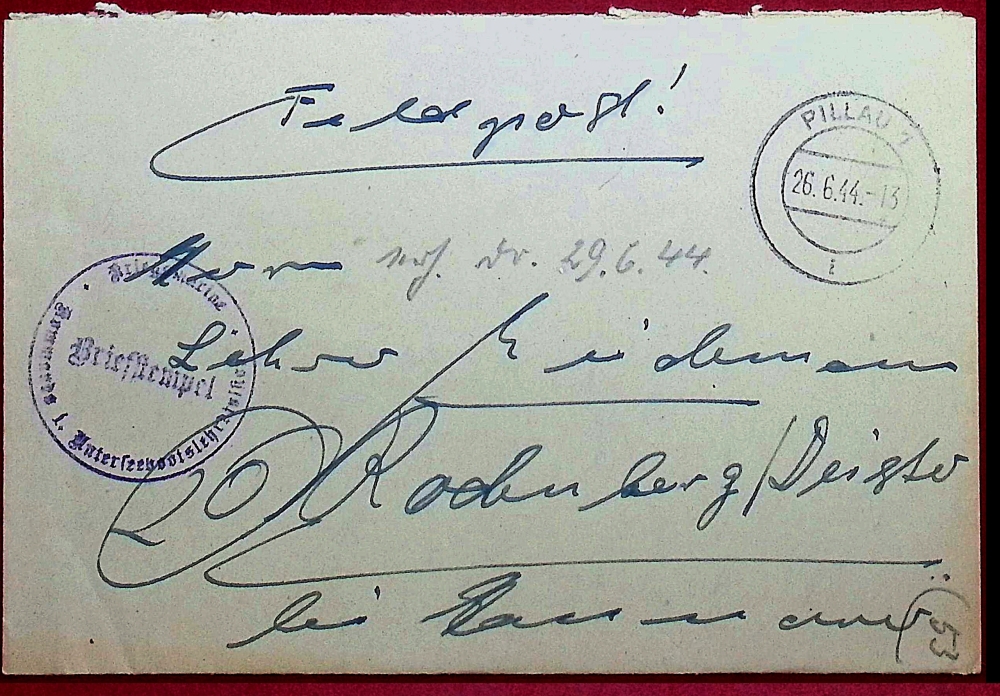 Feldpost!
PILLAU 1
26.6.44.-13
i
Herrn
29.6.44.
Kriegsmarine
Briefstempel
1. Unterseebootslehrdivision
20 Rodenberg/Deister
bei Hannover
53